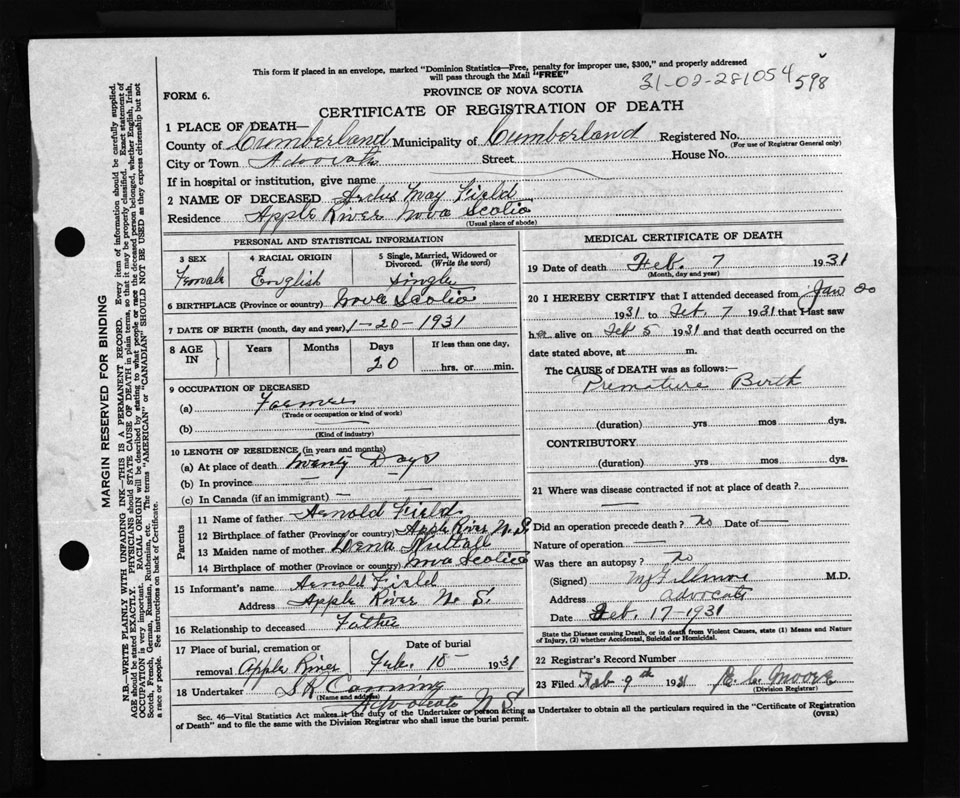 This form if placed in an envelope, marked "Dominion Statistics—Free, penalty for improper use, $300," and properly addressed
will pass through the Mail "FREE"
31-02-281054 598
FORM 6.
PROVINCE OF NOVA SCOTIA
CERTIFICATE OF REGISTRATION OF DEATH
1 PLACE OF DEATH—
County of Cumberland Municipality of Cumberland Registered No.
(For use of Registrar General only)
City or Town Advocate Street House No.
If in hospital or institution, give name
2 NAME OF DECEASED May Field
Residence Apple River Nova Scotia
(Usual place of abode)
PERSONAL AND STATISTICAL INFORMATION
3 SEX 4 RACIAL ORIGIN 5 Single, Married, Widowed or Divorced. (Write the word)
Female English Single
6 BIRTHPLACE (Province or country) Nova Scotia
7 DATE OF BIRTH (month, day and year) 1-20-1931
8 AGE IN Years Months Days If less than one day,
20 hrs. or min.
9 OCCUPATION OF DECEASED
(a)
(Trade or occupation or kind of work)
(b)
(Kind of industry)
10 LENGTH OF RESIDENCE (in years and months)
(a) At place of death Twenty Days
(b) In province — —
(c) In Canada (if an immigrant) — —
Parents
11 Name of father Arnold Field
12 Birthplace of father (Province or country) Apple River N.S.
13 Maiden name of mother Dena
14 Birthplace of mother (Province or country) Nova Scotia
15 Informant's name Arnold Field
Address Apple River N. S.
16 Relationship to deceased Father
17 Place of burial, cremation or Date of burial
removal Apple River Feb. 10 1931
18 Undertaker S R Canning
(Name and address)
Advocate N.S
MEDICAL CERTIFICATE OF DEATH
19 Date of death Feb. 7 1931
(Month, day and year)
20 I HEREBY CERTIFY that I attended deceased from Jan 20
1931 to Feb. 7 1931 that I last saw
h alive on Feb 5 1931 and that death occurred on the
date stated above, at m.
The CAUSE of DEATH was as follows:—
Premature Birth
(duration) yrs mos dys.
CONTRIBUTORY
(duration) yrs. mos. dys.
21 Where was disease contracted if not at place of death?
Did an operation precede death? no Date of—
Nature of operation
Was there an autopsy? no
(Signed) M.D.
Address Advocate
Date Feb. 17-1931
State the Disease causing Death, or in death from Violent Causes, state (1) Means and Nature
of Injury, (2) whether Accidental, Suicidal or Homicidal.
22 Registrar's Record Number
23 Filed Feb 9th 1931 E. C. Moore
(Division Registrar)
Sec. 46—Vital Statistics Act makes it the duty of the Undertaker or person acting as Undertaker to obtain all the particulars required in the "Certificate of Registration
of Death" and to file the same with the Division Registrar who shall issue the burial permit. (OVER)
MARGIN RESERVED FOR BINDING
N.B.—WRITE PLAINLY WITH UNFADING INK—THIS IS A PERMANENT RECORD. Every item of information should be carefully supplied.
AGE should be stated EXACTLY. PHYSICIANS should STATE CAUSE OF DEATH in plain terms, so that it may be properly classified. Exact statement of
OCCUPATION is very important. RACIAL ORIGIN will be described by stating to what people or race the deceased person belonged, whether English, Irish,
Scotch, French, German, Russian, Ruthenian, etc. The terms "AMERICAN" or "CANADIAN" SHOULD NOT BE USED as they express citizenship but not
a race or people. See instructions on back of Certificate.